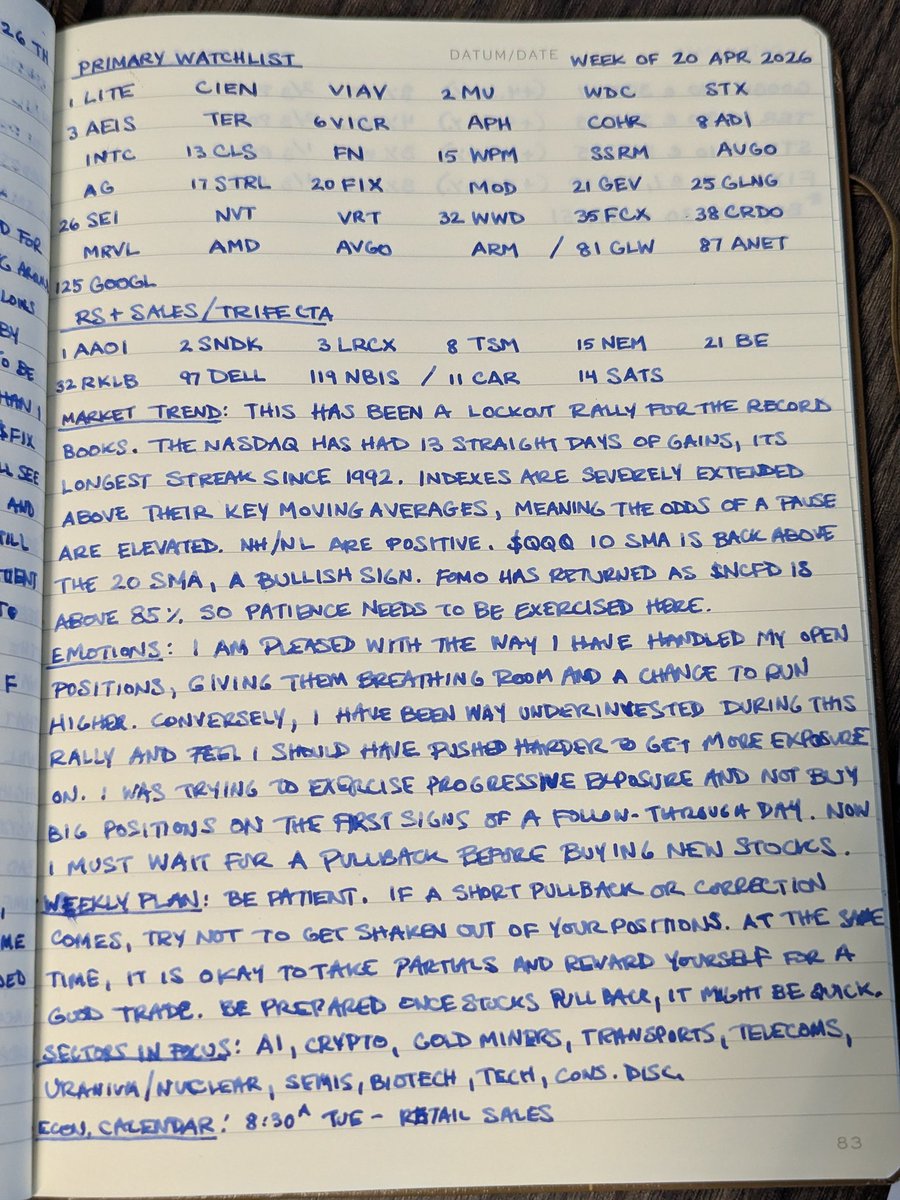 26 TH
PRIMARY WATCHLIST DATUM/DATE WEEK OF 20 APR 2026
1 LITE CIEN VIAV 2 MU WDC STX
3 AEIS TER 6 VICR APH COHR 8 ADI
INTC 13 CLS FN 15 WPM SSRM AVGO
AG 17 STRL 20 FIX MOD 21 GEV 25 GLNG
26 SEI NVT VRT 32 WWD 35 FCX 38 CRDO
MRVL AMD AVGO ARM / 81 GLW 87 ANET
125 GOOGL
RS + SALES/TRIFECTA
1 AAOI 2 SNDK 3 LRCX 8 TSM 15 NEM 21 BE
32 RKLB 97 DELL 119 NBIS / 11 CAR 14 SATS
MARKET TREND: THIS HAS BEEN A LOCKOUT RALLY FOR THE RECORD
BOOKS. THE NASDAQ HAS HAD 13 STRAIGHT DAYS OF GAINS, ITS
LONGEST STREAK SINCE 1992. INDEXES ARE SEVERELY EXTENDED
ABOVE THEIR KEY MOVING AVERAGES, MEANING THE ODDS OF A PAUSE
ARE ELEVATED. NH/NL ARE POSITIVE. $QQQ 10 SMA IS BACK ABOVE
THE 20 SMA, A BULLISH SIGN. FOMO HAS RETURNED AS $NCFD IS
ABOVE 85%. SO PATIENCE NEEDS TO BE EXERCISED HERE.
EMOTIONS: I AM PLEASED WITH THE WAY I HAVE HANDLED MY OPEN
POSITIONS, GIVING THEM BREATHING ROOM AND A CHANCE TO RUN
HIGHER. CONVERSELY, I HAVE BEEN WAY UNDERINVESTED DURING THIS
RALLY AND FEEL I SHOULD HAVE PUSHED HARDER TO GET MORE EXPOSURE
ON. I WAS TRYING TO EXERCISE PROGRESSIVE EXPOSURE AND NOT BUY
BIG POSITIONS ON THE FIRST SIGNS OF A FOLLOW-THROUGH DAY. NOW
I MUST WAIT FOR A PULLBACK BEFORE BUYING NEW STOCKS.
WEEKLY PLAN: BE PATIENT. IF A SHORT PULLBACK OR CORRECTION
COMES, TRY NOT TO GET SHAKEN OUT OF YOUR POSITIONS. AT THE SAME
TIME, IT IS OKAY TO TAKE PARTIALS AND REWARD YOURSELF FOR A
GOOD TRADE. BE PREPARED ONCE STOCKS PULL BACK, IT MIGHT BE QUICK.
SECTORS IN FOCUS: AI, CRYPTO, GOLD MINERS, TRANSPORTS, TELECOMS,
URANIUM/NUCLEAR, SEMIS, BIOTECH, TECH, CONS. DISC.
ECON. CALENDAR: 8:30A TUE - RETAIL SALES
83